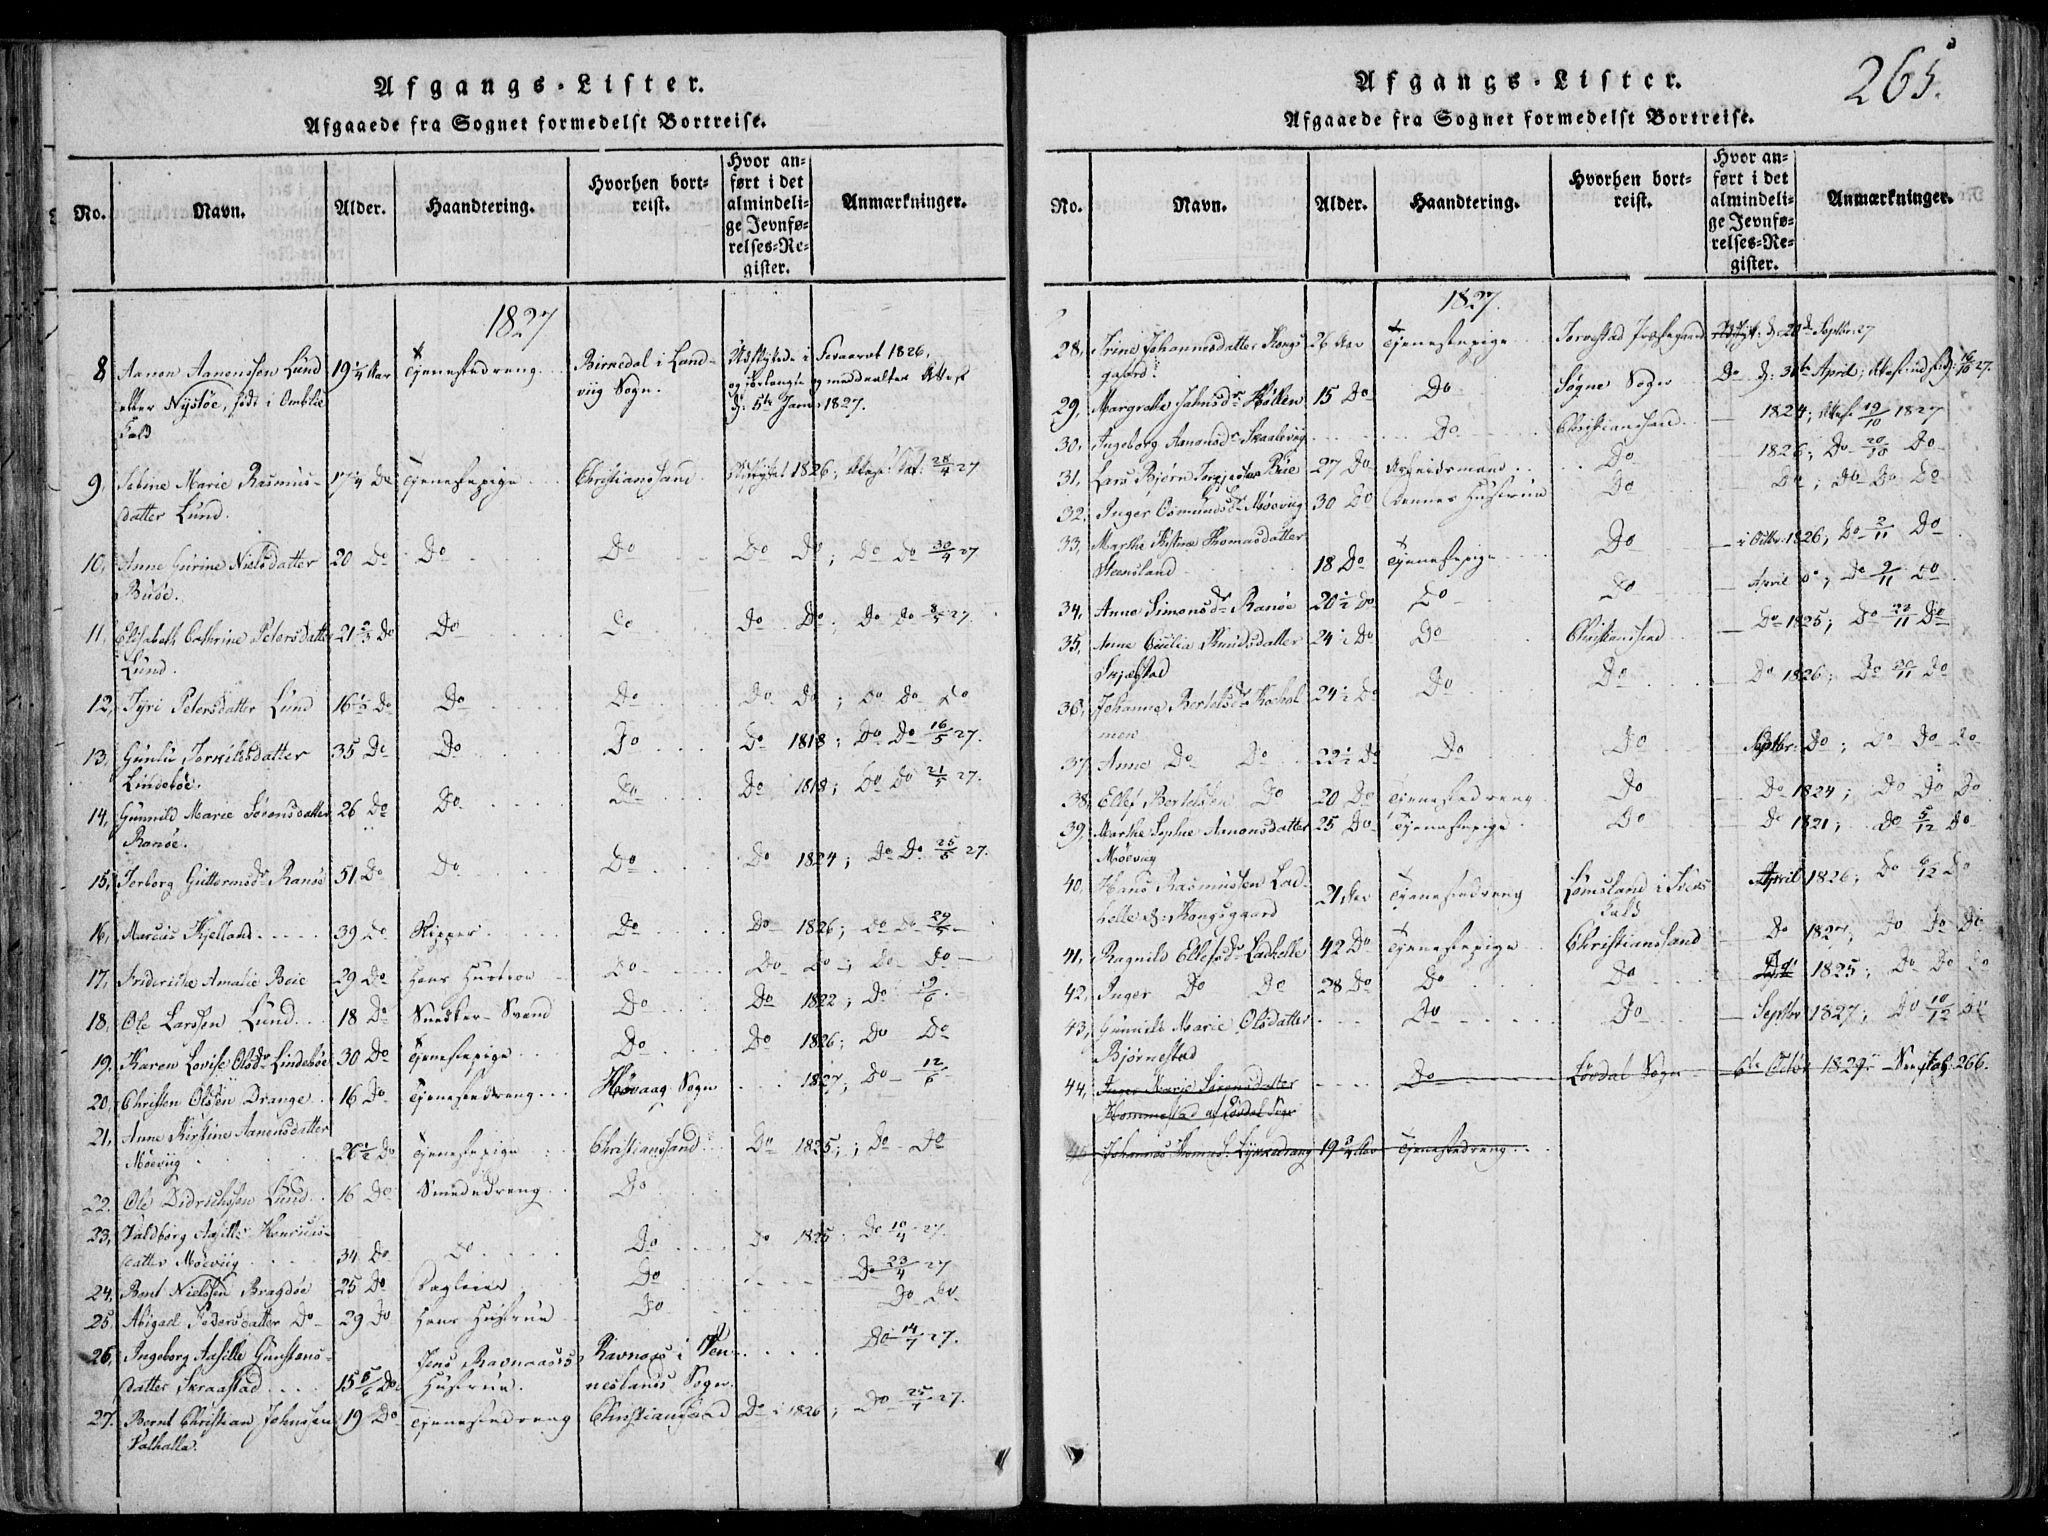 Afgangs-Lister.
Afgaaede fra Sognet formedelst Bortreise.
No. Navn. Alder. Haandtering. Hvorhen bortreist. Hvor anført i det almindelige Jevnførelses-Register. Anmærkninger.
1827
8 Aanon Aanonssen Lund 19 1/4 Aar Tjenestedreng Birkedal i Land- Udflyttede i Foraaret 1826,
eller Nystøe, født i Omblie viig Sogn. og forlangte og meddeeltes Attest
Fald d: 5te Janr 1827.
9, Sabine Marie Rasmus- 17 1/4 Do Tjenestepige Christianssand 1826; 28/4 27
datter Lund.
10, Anne Guirine Nielsdatter 20 Do Do Do Do Do; Do Do 30/4 27
Buøe.
11, Elisabeth Cathrine Petersdatter 21 Do Do Do Do Do; Do Do 8/5 27.
Lund.
12, Tyri Petersdatter Lund 16 1/2 Do Do Do Do Do; Do Do Do
13, Gunlu Torkildsdatter 35 Do Do Do Do 1818; Do Do 16/5 27.
Lindebøe.
14, Gunnild Marie Sørensdatter 26 Do Do Do Do 1818; Do Do 21/5 27.
Ranøe.
15, Torborg Guttormsdr Ranøe 51 Do Do Do Do 1824; Do Do 25/5 27.
16, Marcus Kjelland 39 Do Skipper Do Do 1826; Do Do 29/5
17, Frideriche Amalie Beie 29 Do Hans Hustroe Do Do Do; Do Do
18, Ole Larssen Lund 18 Do Snedker-Svend Do Do 1822; Do 9/6.
19, Karen Lovise Olsdr Lindebøe 30 Do Tjenestepige Do Do 1826; Do Do
20, Christen Olssen Drange 16 Do Tjenestedreng Høvaag Sogn 1827; Do 12/6
21, Anne Kirstine Aanensdatter
Møeviig 26 1/2 Do Tjenestepige Christianssand Do 1825; Do Do
22. Ole Didrichssen Lund 16 Do Smededreng Do
23, Valdborg Aasille Henrics-
datter Møeviig 34 Do Do Do Do 1825; Do 10/4 27.
24, Bent Nielssen Bragdøe 25 Do Dagleier Do Do 23/4 27
25, Abigael Pedersdatter Do 29 Do Hans Hustrue Do Do Do
26, Ingeborg Aasille Gunstens- Jens Ravnaases Ravnaas i Ven- Do 14/7 27.
datter Skraastad 15 5/6 Do Hustrue. neslands Sogn.
27. Bernt Christian Johnssen 19 Do Tjenestedreng Christianssand Do i 1826; Do 25/7 27.
Valhalla.
265.
Afgangs-Lister.
Afgaaede fra Sognet formedelst Bortreise.
No. Navn. Alder. Haandtering. Hvorhen bortreist. Hvor anført i det almindelige Jevnførelses-Register. Anmærkninger.
1827.
28, Trine Johannesdatter Kongs- 26 Aar Tjenestepige d: 20de Septbr: 27
gaard.
29, Margrethe Jahnsdr Kolken 15 Do Do Søgne Sogn Do d: 31te April; 16/10 27.
30, Ingeborg Aanonsdr Skaaleviig Do Christianssand 1824; 19/10 1827
31, Lars Bjørn Bue 27 Do Arbeidsmand Do 1826; Do 20/10 Do
32, Inger Osmundsdr Møeviig 30 Do Dennes Hustrue Do Do; Do Do Do
33, Marthe Kistine Thomasdatter
Steensland 18 Do Tjenestepige Do i Octbr: 1826; Do 2/11 Do
34, Anne Simonsdr Ranøe 20 1/2 Do Do Do April Do; Do 9/11 Do
35, Anne Cicilia Knudsdatter 24 1/2 Do Do Christianssand Do 1825; Do 22/11 Do
36, Johanne Bertelsdr Kochol- 24 1/2 Do Do Do Do 1826; Do 30/11 Do
men
37, Anne Do Do 22 1/2 Do Do Do Septbr: Do; Do Do Do
38, Ellef Bertelsen Do 20 Do Tjenestedreng Do Do 1824; Do Do Do
39, Marthe Sophie Aanonsdatter 25 Do Tjenestepige Do Do 1821; Do 5/12 Do
Møeviig
40, Hans Rasmussen Lad- 21 Aar Tjenestedreng Lømsland i April 1826; Do 6/12 Do
helle & Kongsgaard Fald
41, Ragnild Ellefsdr Ladhelle 42 Do Tjenestepige Christianssand Do 1827; Do Do Do
42, Inger Do Do 28 Do Do Do 1825; Do Do Do
43, Gunnild Marie Olsdatter Do Do Septbr 1827; Do 10/12 Do
Bjørnestad
44, Inger Marie Sørensdatter Do Løvdal Sogn 6te Octbr 1829 266.
Hommestad af Løvdal Sogn
45 Johannes Lykkedrang 19 Aar Tjenestedreng